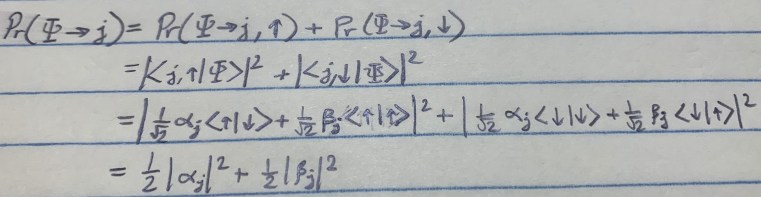 Pr(Φ→j) = Pr(Φ→j, ↑) + Pr(Φ→j, ↓)
= |<j,↑|Φ>|² + |<j,↓|Φ>|²
= |1/√2 αj <↑|↓> + 1/√2 βj <↑|↑>|² + |1/√2 αj <↓|↓> + 1/√2 βj <↓|↑>|²
= 1/2 |αj|² + 1/2 |βj|²